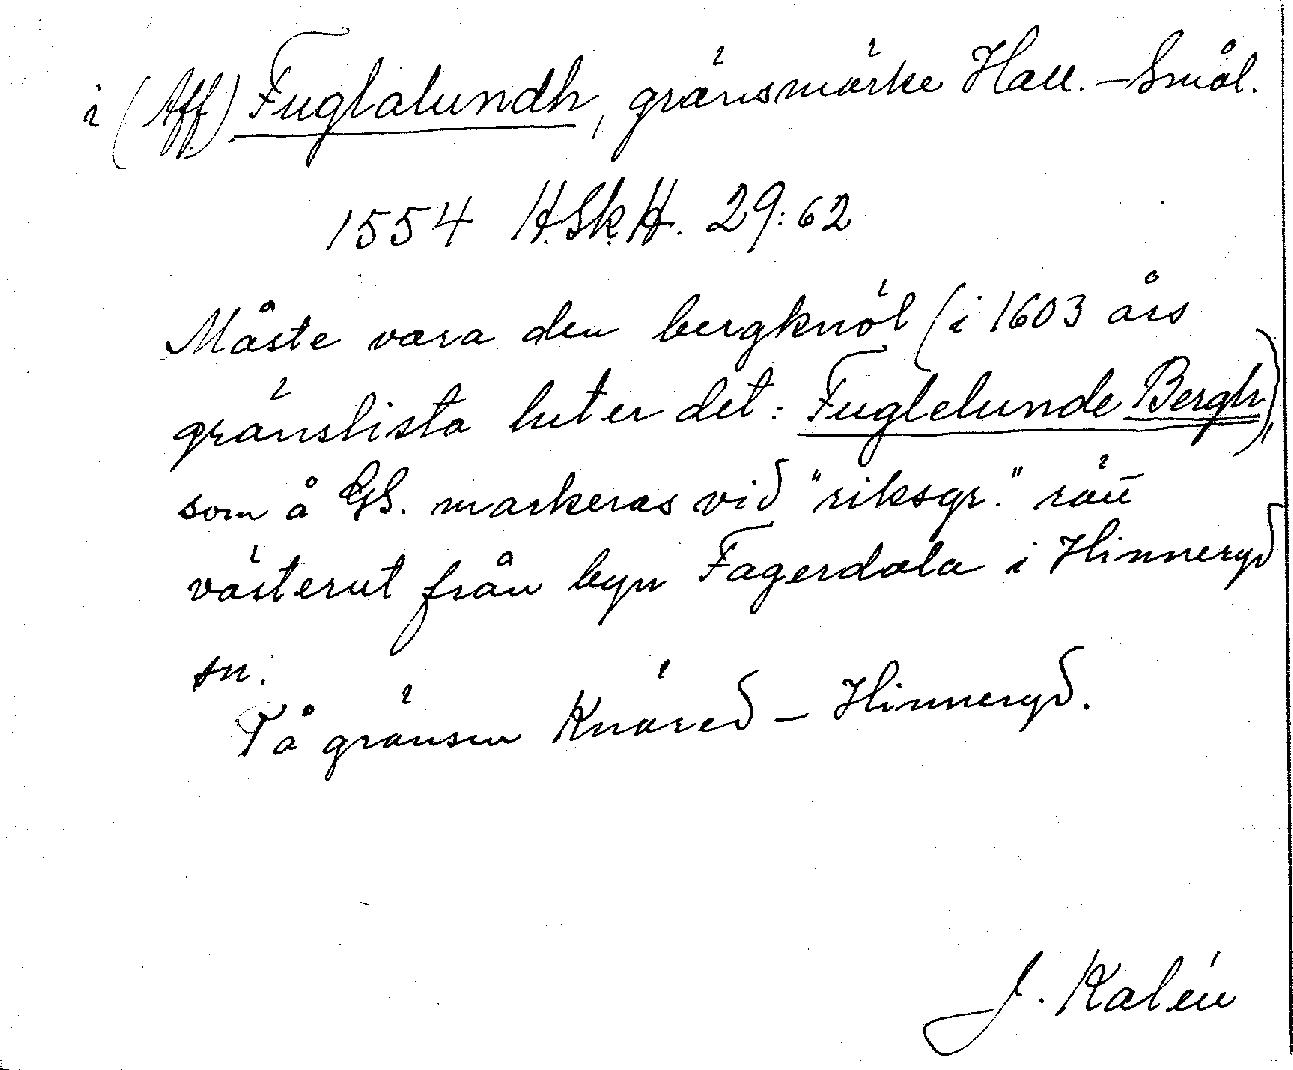 i (Aff) Fuglalundh, gränsmärke Hall. – Smål.
1554 H.Sk.H. 29:62
Måste vara den bergknöl (i 1603 års
gränslista heter det: Fuglelunde Bergh),
som å GS. markeras vid "riksgr."
västerut från byn Fagerdala i Hinneryd
sn.
På gränsen Knäred – Hinneryd.
J. Kalén